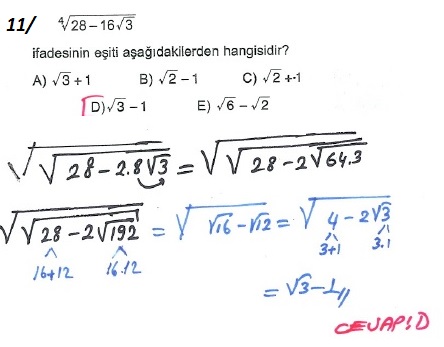 11/ ⁴√28 – 16√3
ifadesinin eşiti aşağıdakilerden hangisidir?
A) √3 + 1 B) √2 – 1 C) √2 + 1
D) √3 – 1 E) √6 – √2
√√28 – 2.8√3 = √√28 – 2√64.3
√√28 – 2√192 = √√16 – √12 = √4 – 2√3
16+12 16.12 3+1 3.1
= √3 – 1//
CEVAP: D